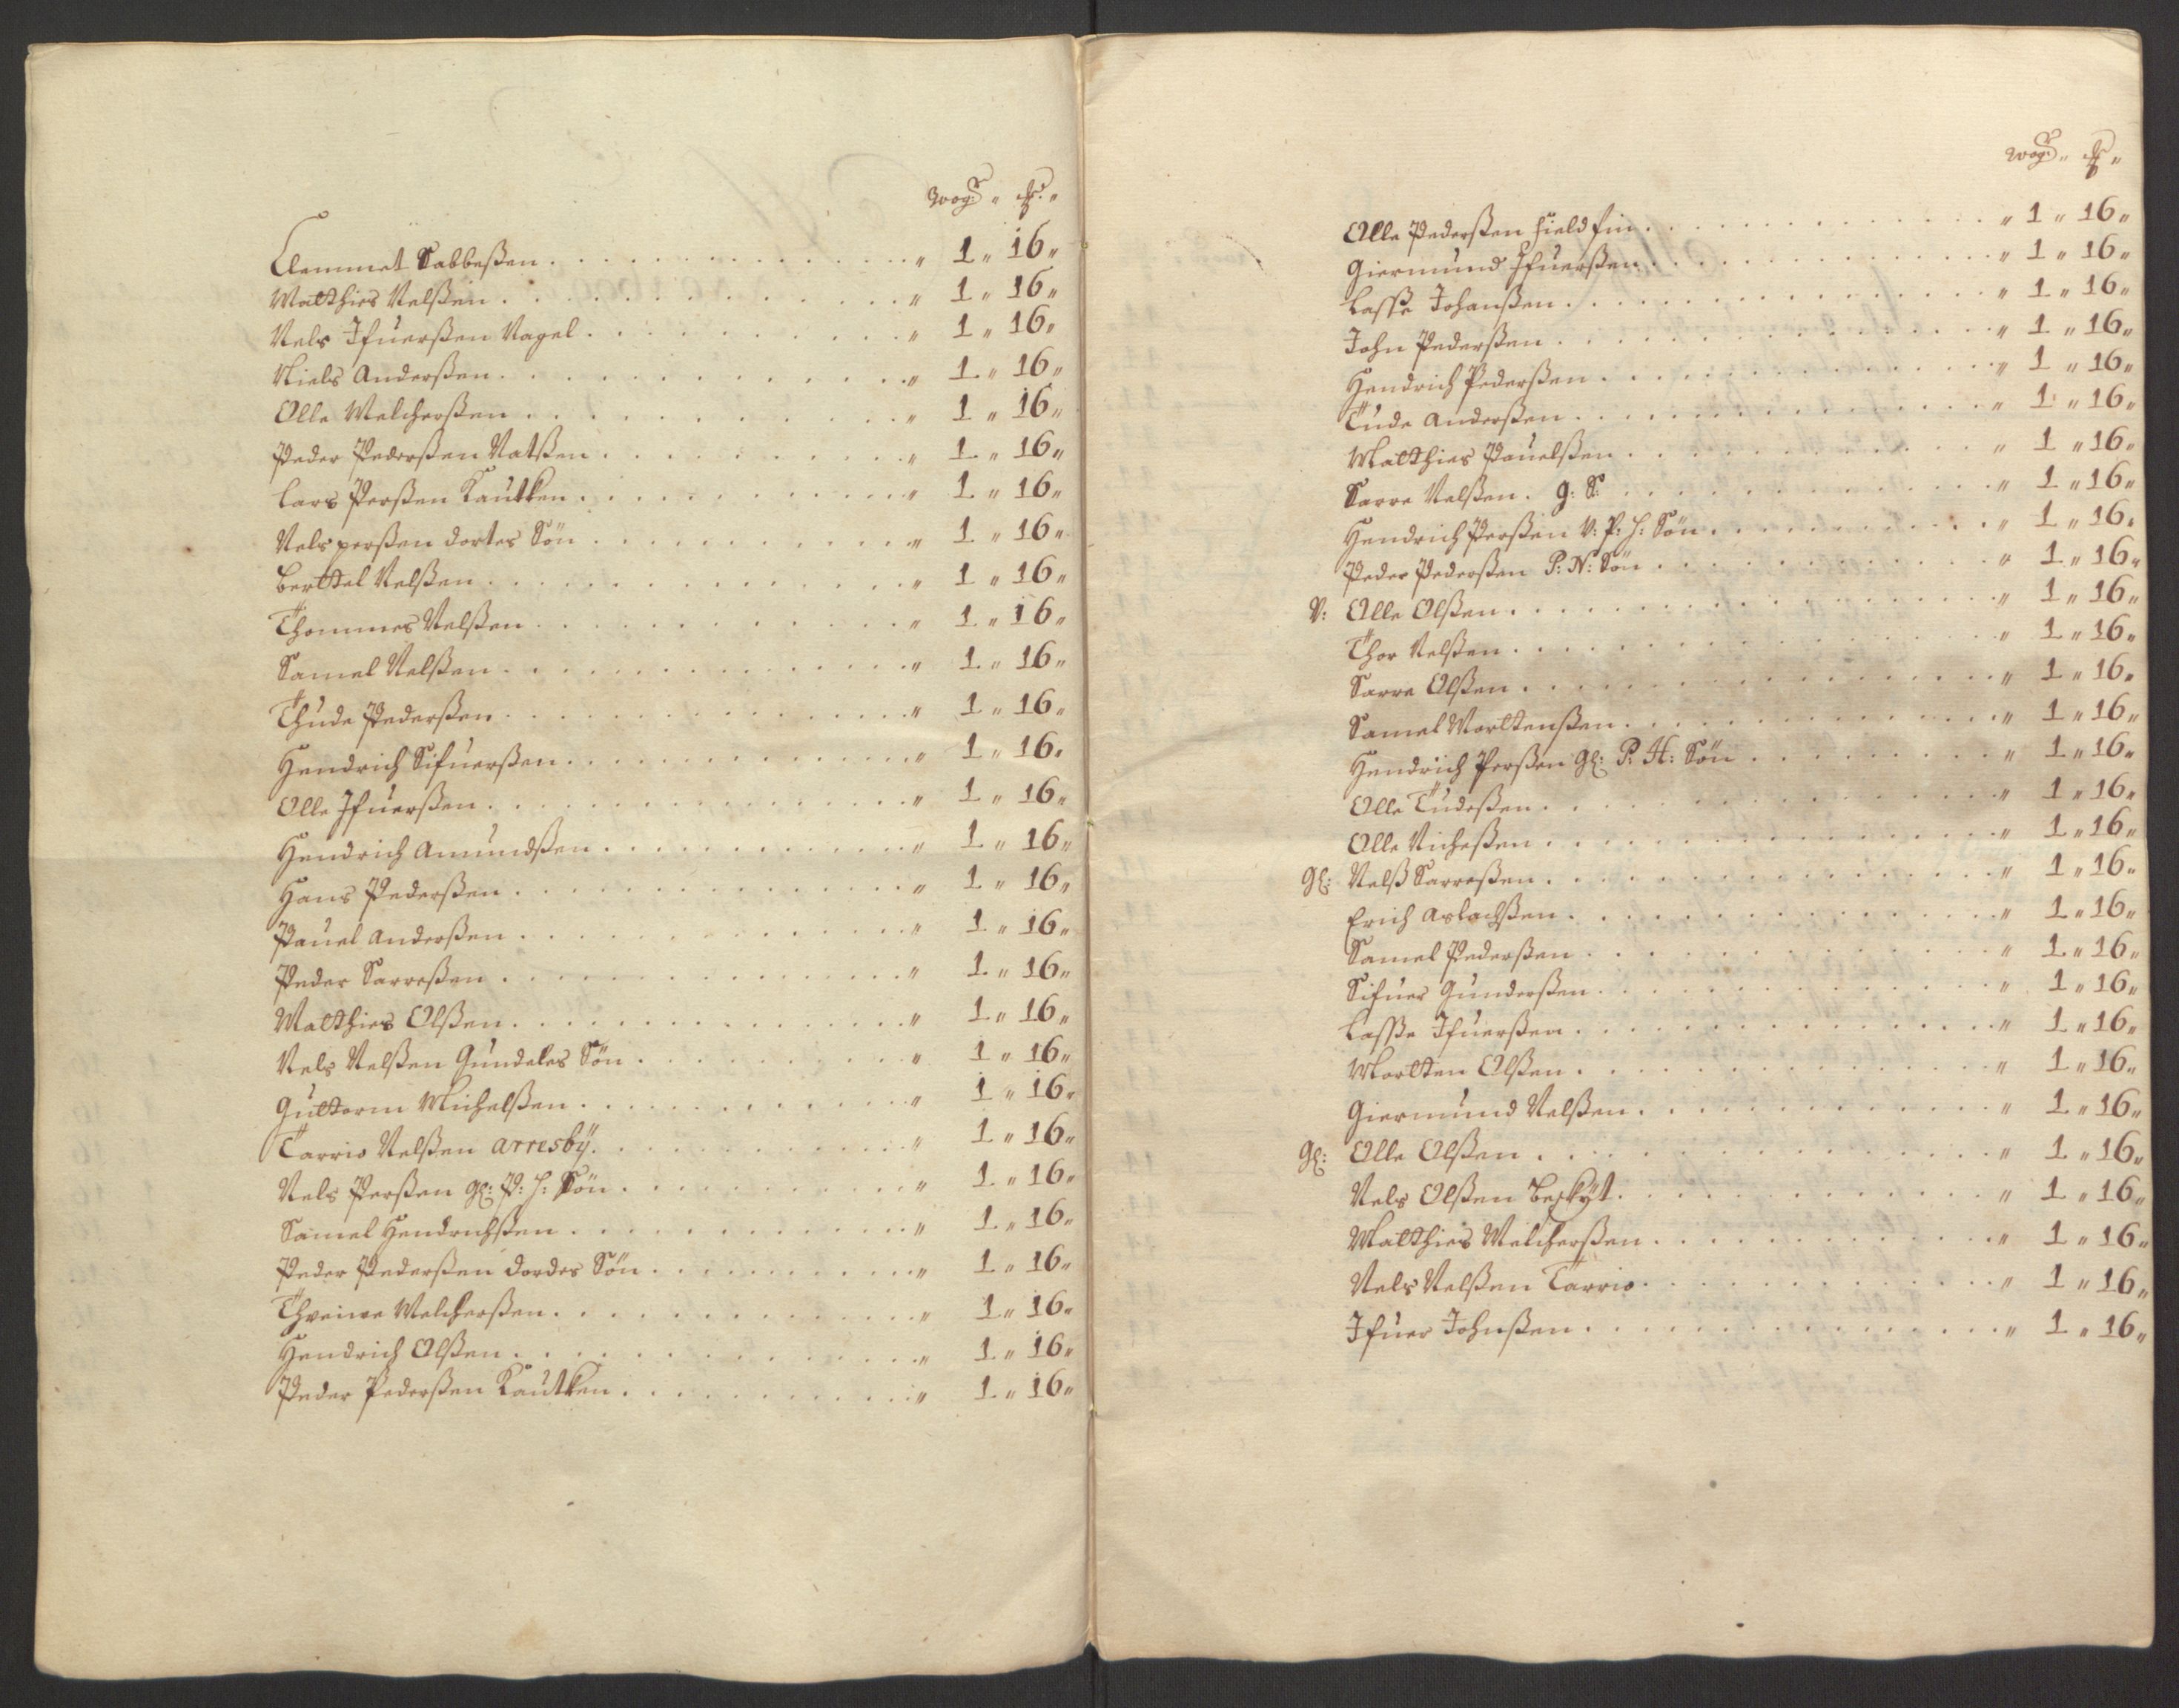 Wog: „ ℔: „
Clemmet Sabbeßen . . . „ 1 „ 16 „
Matthies Nelßen . . . „ 1 „ 16 „
Nels Ifuerßen Nagel . . . „ 1 „ 16 „
Niels Anderßen . . . „ 1 „ 16 „
Olle Melcherßen . . . „ 1 „ 16 „
Peder Pederßen Natßen . . . „ 1 „ 16 „
Lars Perßen Kautken . . . „ 1 „ 16 „
Nels perßen dortes Sön . . . „ 1 „ 16 „
Berttel Nelßen . . . „ 1 „ 16 „
Thommes Nelßen . . . „ 1 „ 16 „
Samel Nelßen . . . „ 1 „ 16 „
Thude Pederßen . . . „ 1 „ 16 „
Hendrich Sifuerßen . . . „ 1 „ 16 „
Olle Ifuerßen . . . „ 1 „ 16 „
Hendrich Amundßen . . . „ 1 „ 16 „
Hans Pederßen . . . „ 1 „ 16 „
Pauel Anderßen . . . „ 1 „ 16 „
Peder Sarreßen . . . „ 1 „ 16 „
Matthies Olßen . . . „ 1 „ 16 „
Nels Nelßen Gundeles Sön . . . „ 1 „ 16 „
Guttorm Michelßen . . . „ 1 „ 16 „
Tarrio Nelßen arresbÿ . . . „ 1 „ 16 „
Nels Perßen gl: P: H: Sön . . . „ 1 „ 16 „
Samel Hendrichßen . . . „ 1 „ 16 „
Peder Pederßen dordes Sön . . . „ 1 „ 16 „
Melcherßen . . . „ 1 „ 16 „
Hendrich Olßen . . . „ 1 „ 16 „
Peder Pederßen Kautken . . . „ 1 „ 16 „
Wog: „ ℔ „
Olle Pederßen field fin . . . „ 1 „ 16 „
Giermund Ifuerßen . . . „ 1 „ 16 „
Lasse Johanßen . . . „ 1 „ 16 „
John Pederßen . . . „ 1 „ 16 „
Hendrich Pederßen . . . „ 1 „ 16 „
Tude Anderßen . . . „ 1 „ 16 „
Matthies Pauelßen . . . „ 1 „ 16 „
Sarre Nelßen . g: S: . . . „ 1 „ 16 „
Hendrich Perßen V: P: H: Sön . . . „ 1 „ 16 „
Peder Pederßen P: N: Sön . . . „ 1 „ 16 „
V: Olle Olßen . . . „ 1 „ 16 „
Thor Nelßen . . . „ 1 „ 16 „
Sarre Olßen . . . „ 1 „ 16 „
Samel Morttenßen . . . „ 1 „ 16 „
Hendrich Perßen gl: P: H: Sön . . . „ 1 „ 16 „
Olle Tudeßen . . . „ 1 „ 16 „
Olle Nicheßen . . . „ 1 „ 16 „
gl: Nelß Sarreßen . . . „ 1 „ 16 „
Erich Aslachßen . . . „ 1 „ 16 „
Samel Pederßen . . . „ 1 „ 16 „
Sifuer Gunderßen . . . „ 1 „ 16 „
Lasse Ifuerßen . . . „ 1 „ 16 „
Mortten Olßen . . . „ 1 „ 16 „
Giermund Nelßen . . . „ 1 „ 16 „
gl: Olle Olßen . . . „ 1 „ 16 „
Nels Olßen Beskÿt . . . „ 1 „ 16 „
Matthies Melcherßen . . . „ 1 „ 16 „
Nels Nelßen Tarrio . . . „ 1 „ 16 „
Ifuer Johnßen . . . „ 1 „ 16 „